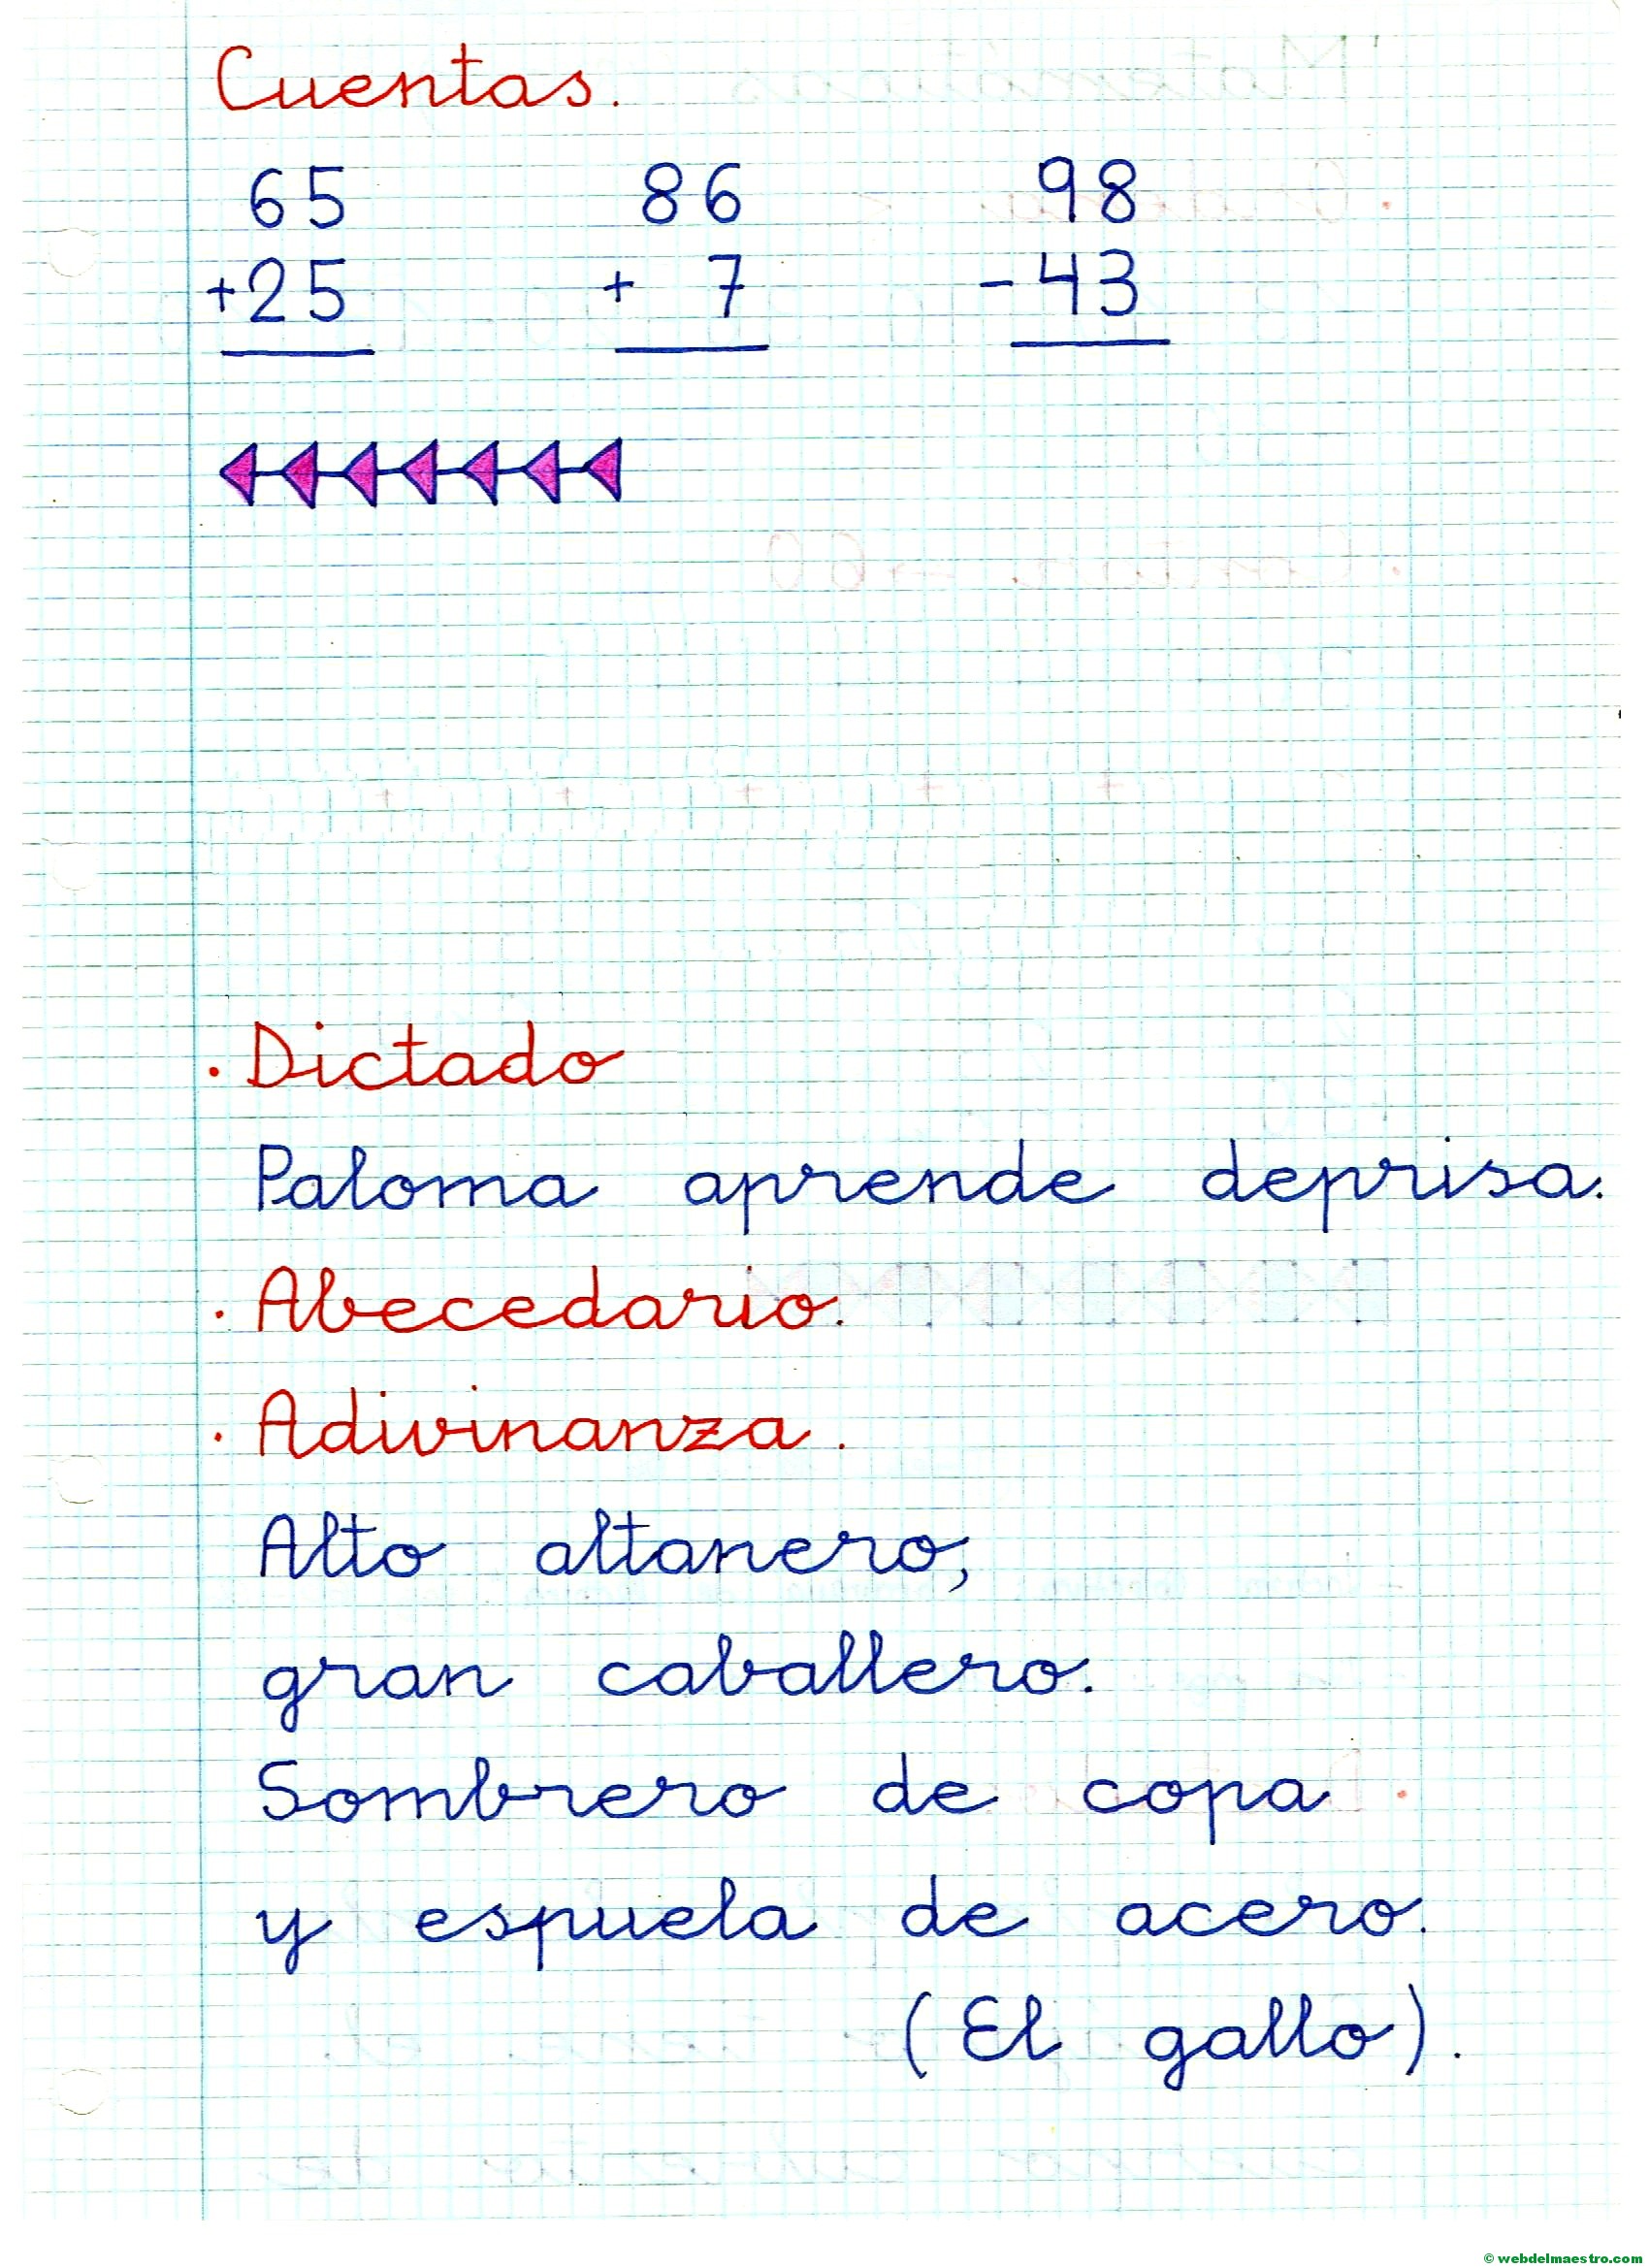 Cuentas.
65 86 98
+25 + 7 -43
. Dictado
Paloma aprende deprisa.
. Abecedario.
. Adivinanza.
Alto altanero,
gran caballero.
Sombrero de copa
y espuela de acero.
(El gallo).
© webdelmaestro.com